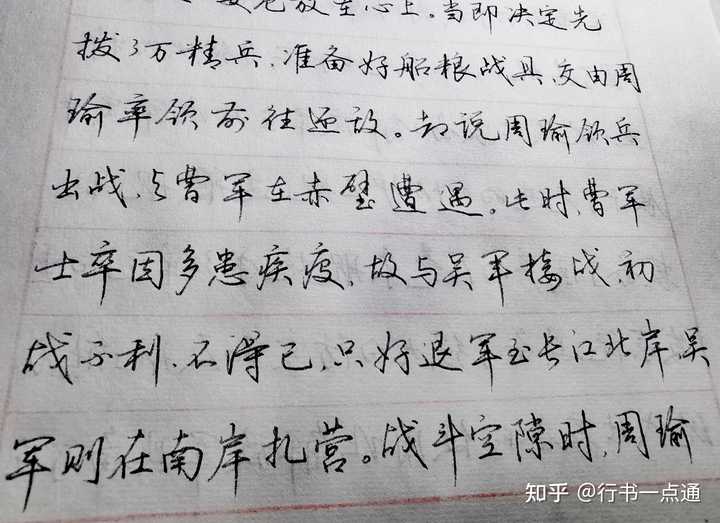 放在心上。当即决定先
拨3万精兵,准备好船粮战具,交由周
瑜率领前往还敌。却说周瑜领兵
出战,与曹军在赤壁遭遇。此时,曹军
士卒因多患疾疫,故与吴军接战,初
战不利,不得已,只好退军至长江北岸,吴
军则在南岸扎营。战斗空隙时,周瑜
知乎 @行书一点通